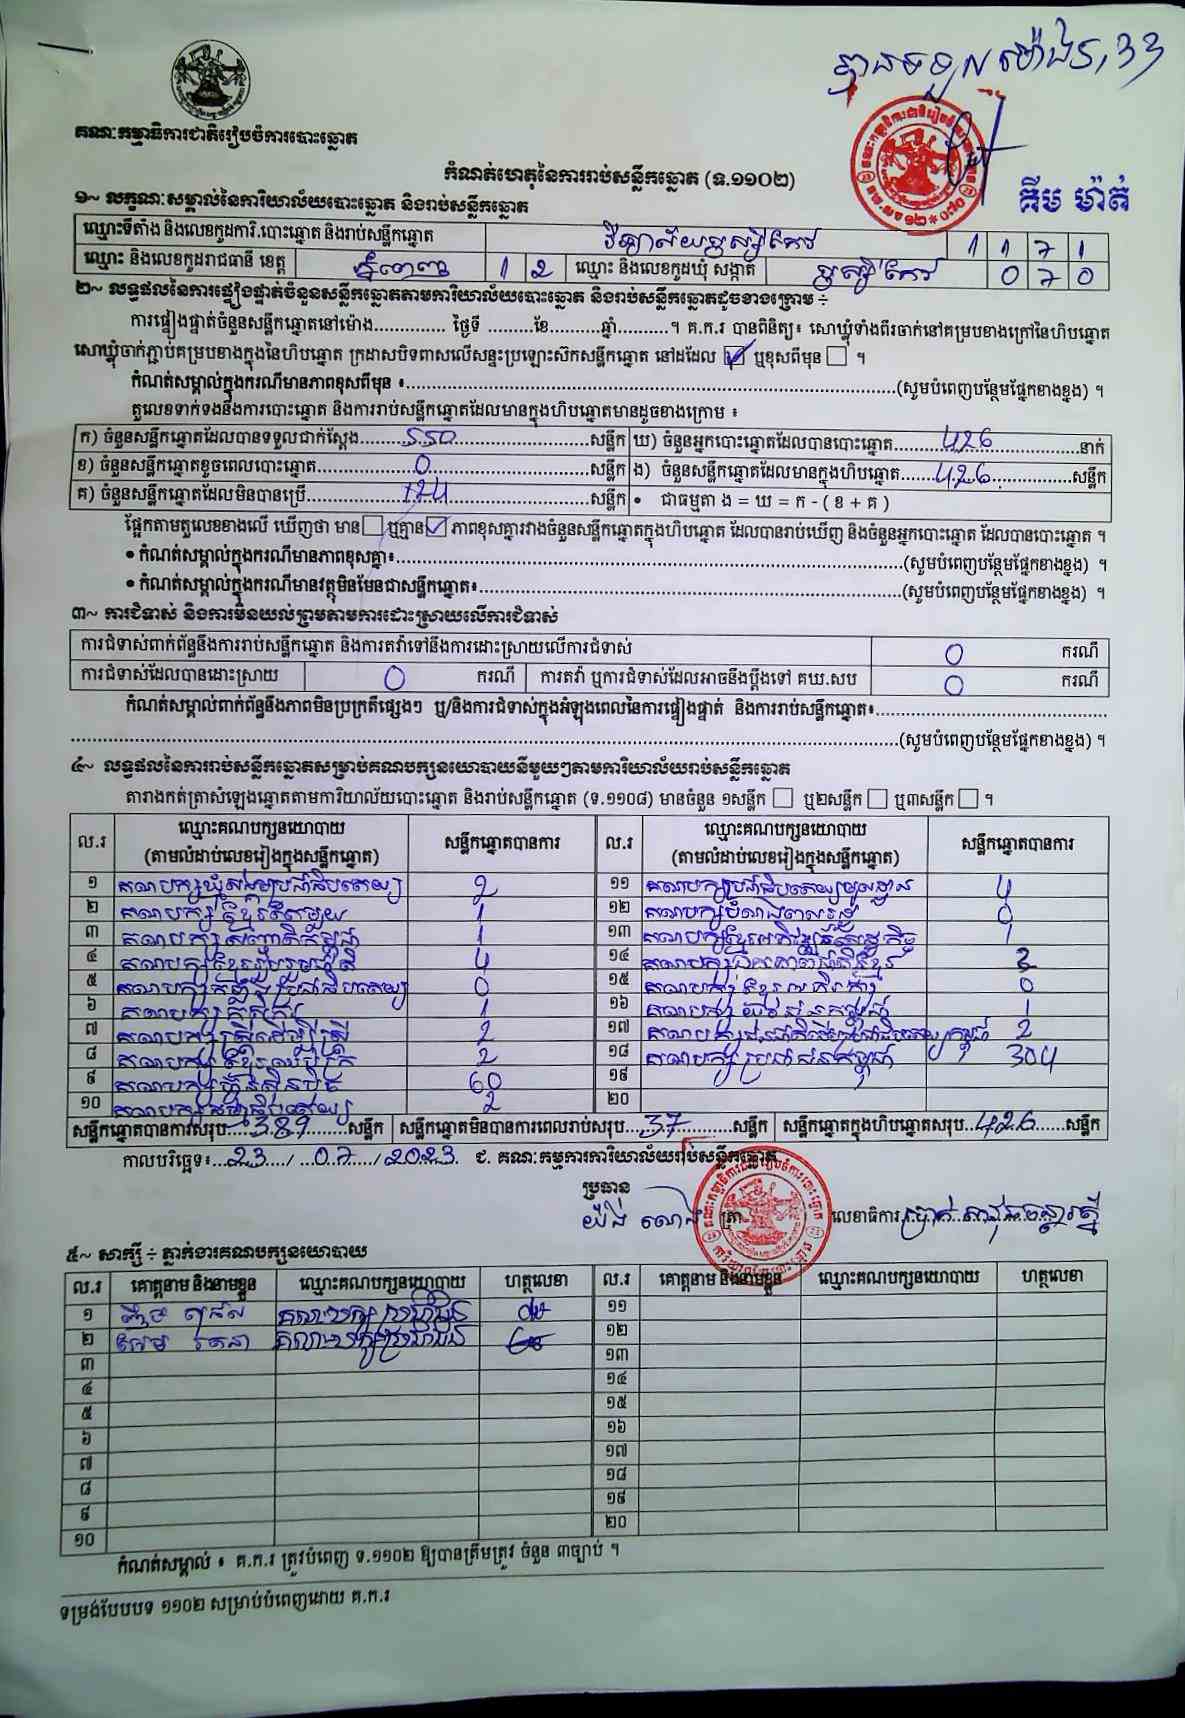 គណៈកម្មាធិការជាតិរៀបចំការបោះឆ្នោត
កំណត់ហេតុនៃការរាប់សន្លឹកឆ្នោត (ទ.១១០២)
គឹម ម៉ាត់
១~ លក្ខណៈសម្គាល់នៃការិយាល័យបោះឆ្នោត និងរាប់សន្លឹកឆ្នោត
ឈ្មោះទីតាំង និងលេខកូដការិ.បោះឆ្នោត និងរាប់សន្លឹកឆ្នោត វិទ្យាល័យឫស្សីកែវ 1 1 7 1
ឈ្មោះ និងលេខកូដរាជធានី ខេត្ត ភ្នំពេញ 1 2 ឈ្មោះ និងលេខកូដឃុំ សង្កាត់ ឫស្សីកែវ 0 7 0
២~ លទ្ធផលនៃការផ្ទៀងផ្ទាត់ចំនួនសន្លឹកឆ្នោតតាមការិយាល័យបោះឆ្នោត និងរាប់សន្លឹកឆ្នោតដូចខាងក្រោម ÷
ការផ្ទៀងផ្ទាត់ចំនួនសន្លឹកឆ្នោតនៅម៉ោង............. ថ្ងៃទី .........ខែ..........ឆ្នាំ..........។ គ.ក.រ បានពិនិត្យ៖ សោឃ្លុំទាំងពីរចាក់នៅគម្របខាងក្រៅនៃហិបឆ្នោត
សោឃ្លុំចាក់ភ្ជាប់គម្របខាងក្នុងនៃហិបឆ្នោត ក្រដាសបិទពាសលើសន្ទះប្រឡោះស៊កសន្លឹកឆ្នោត នៅដដែល ☑ ឬខុសពីមុន ☐ ។
កំណត់សម្គាល់ក្នុងករណីមានភាពខុសពីមុន ៖..............................(សូមបំពេញបន្ថែមផ្នែកខាងខ្នង) ។
តួលេខទាក់ទងនឹងការបោះឆ្នោត និងការរាប់សន្លឹកឆ្នោតដែលមានក្នុងហិបឆ្នោតមានដូចខាងក្រោម ៖
ក) ចំនួនសន្លឹកឆ្នោតដែលបានទទួលជាក់ស្តែង.......550.......សន្លឹក ឃ) ចំនួនអ្នកបោះឆ្នោតដែលបានបោះឆ្នោត.......426.......នាក់
ខ) ចំនួនសន្លឹកឆ្នោតខូចពេលបោះឆ្នោត.......0.......សន្លឹក ង) ចំនួនសន្លឹកឆ្នោតដែលមានក្នុងហិបឆ្នោត.......426.......សន្លឹក
គ) ចំនួនសន្លឹកឆ្នោតដែលមិនបានប្រើ.......124.......សន្លឹក • ជាធម្មតា ង = ឃ = ក - ( ខ + គ )
ផ្អែកតាមតួលេខខាងលើ ឃើញថា មាន ☐ ឬគ្មាន ☑ ភាពខុសគ្នារវាងចំនួនសន្លឹកឆ្នោតក្នុងហិបឆ្នោត ដែលបានរាប់ឃើញ និងចំនួនអ្នកបោះឆ្នោត ដែលបានបោះឆ្នោត ។
• កំណត់សម្គាល់ក្នុងករណីមានភាពខុសគ្នា៖..............................(សូមបំពេញបន្ថែមផ្នែកខាងខ្នង) ។
• កំណត់សម្គាល់ក្នុងករណីមានវត្ថុមិនមែនជាសន្លឹកឆ្នោត៖..............................(សូមបំពេញបន្ថែមផ្នែកខាងខ្នង) ។
៣~ ការជំទាស់ និងការមិនយល់ព្រមតាមការដោះស្រាយលើការជំទាស់
ការជំទាស់ពាក់ព័ន្ធនឹងការរាប់សន្លឹកឆ្នោត និងការតវ៉ាទៅនឹងការដោះស្រាយលើការជំទាស់ 0 ករណី
ការជំទាស់ដែលបានដោះស្រាយ 0 ករណី ការតវ៉ា ឬការជំទាស់ដែលអាចនឹងប្តឹងទៅ គឃ.សប 0 ករណី
កំណត់សម្គាល់ពាក់ព័ន្ធនឹងភាពមិនប្រក្រតីផ្សេងៗ ឬ/និងការជំទាស់ក្នុងអំឡុងពេលនៃការផ្ទៀងផ្ទាត់ និងការរាប់សន្លឹកឆ្នោត៖..............................
..............................(សូមបំពេញបន្ថែមផ្នែកខាងខ្នង) ។
៤~ លទ្ធផលនៃការរាប់សន្លឹកឆ្នោតសម្រាប់គណបក្សនយោបាយនីមួយៗតាមការិយាល័យរាប់សន្លឹកឆ្នោត
តារាងកត់ត្រាសំឡេងឆ្នោតតាមការិយាល័យបោះឆ្នោត និងរាប់សន្លឹកឆ្នោត (ទ.១១០៨) មានចំនួន ១សន្លឹក ☐ ឬ២សន្លឹក ☐ ឬ៣សន្លឹក ☐ ។
ល.រ ឈ្មោះគណបក្សនយោបាយ (តាមលំដាប់លេខរៀងក្នុងសន្លឹកឆ្នោត) សន្លឹកឆ្នោតបានការ ល.រ ឈ្មោះគណបក្សនយោបាយ (តាមលំដាប់លេខរៀងក្នុងសន្លឹកឆ្នោត) សន្លឹកឆ្នោតបានការ
១ គណបក្សឃ្មុំសង្គមប្រជាធិបតេយ្យ 2 ១១ គណបក្សប្រជាធិបតេយ្យមូលដ្ឋាន 4
២ គណបក្សខ្មែរតែមួយ 1 ១២ គណបក្សបំណងពលរដ្ឋ 0
៣ គណបក្សសញ្ជាតិកម្ពុជា 1 ១៣ គណបក្សខ្មែរអភិវឌ្ឍន៍សេដ្ឋកិច្ច 1
៤ គណបក្សខ្មែររួបរួមជាតិ 4 ១៤ គណបក្សឯកភាពជាតិខ្មែរ 3
៥ គណបក្សកម្លាំងប្រជាធិបតេយ្យ 0 ១៥ គណបក្សខ្មែរអភិរក្ស 0
៦ គណបក្សកសិករ 1 ១៦ គណបក្សយុវជនកម្ពុជា 1
៧ គណបក្សស្ត្រីដើម្បីស្ត្រី 2 ១៧ គណបក្សជនជាតិដើមប្រជាធិបតេយ្យកម្ពុជា 2
៨ គណបក្សខ្មែរឈប់ក្រ 2 ១៨ គណបក្សប្រជាជនកម្ពុជា 304
៩ គណបក្សហ៊្វុនស៊ិនប៉ិច 60 ១៩
១០ គណបក្សធម្មាធិបតេយ្យ 2 ២០
សន្លឹកឆ្នោតបានការសរុប....389.......សន្លឹក សន្លឹកឆ្នោតមិនបានការពេលរាប់សរុប...37.......សន្លឹក សន្លឹកឆ្នោតក្នុងហិបឆ្នោតសរុប..426......សន្លឹក
កាលបរិច្ឆេទ៖...23..../...07..../2023. ជ. គណៈកម្មការការិយាល័យរាប់សន្លឹកឆ្នោត
ប្រធាន
ត្រា លេខាធិការ
៥~ សាក្សី ÷ ភ្នាក់ងារគណបក្សនយោបាយ
ល.រ គោត្តនាម និងនាមខ្លួន ឈ្មោះគណបក្សនយោបាយ ហត្ថលេខា ល.រ គោត្តនាម និងនាមខ្លួន ឈ្មោះគណបក្សនយោបាយ ហត្ថលេខា
១ គណបក្សប្រជាជន ១១
២ គណបក្សប្រជាជន ១២
៣ ១៣
៤ ១៤
៥ ១៥
៦ ១៦
៧ ១៧
៨ ១៨
៩ ១៩
១០ ២០
កំណត់សម្គាល់ ៖ គ.ក.រ ត្រូវបំពេញ ទ.១១០២ ឱ្យបានត្រឹមត្រូវ ចំនួន ៣ច្បាប់ ។
ទម្រង់បែបបទ ១១០២ សម្រាប់បំពេញដោយ គ.ក.រ